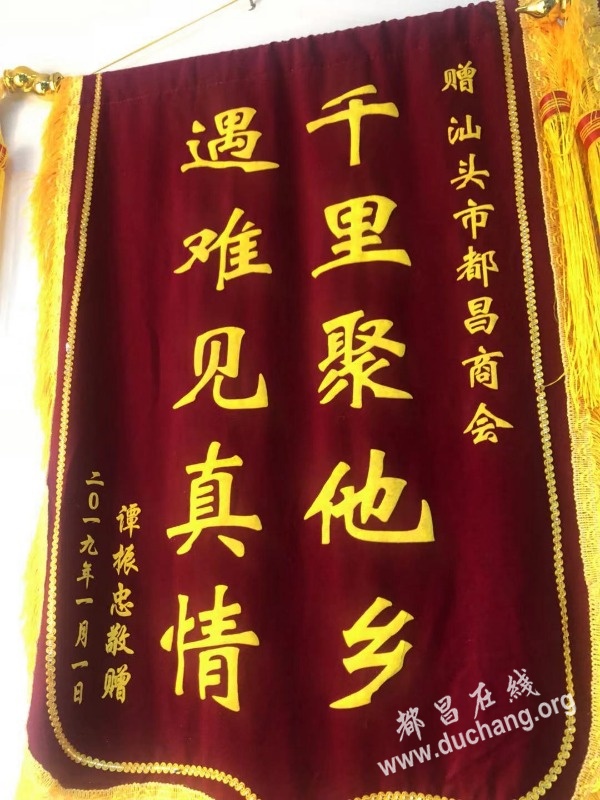 赠汕头市都昌商会
千里聚他乡
遇难见真情
谭振忠敬赠
二〇一九年一月一日
都昌在线
www.duchang.org